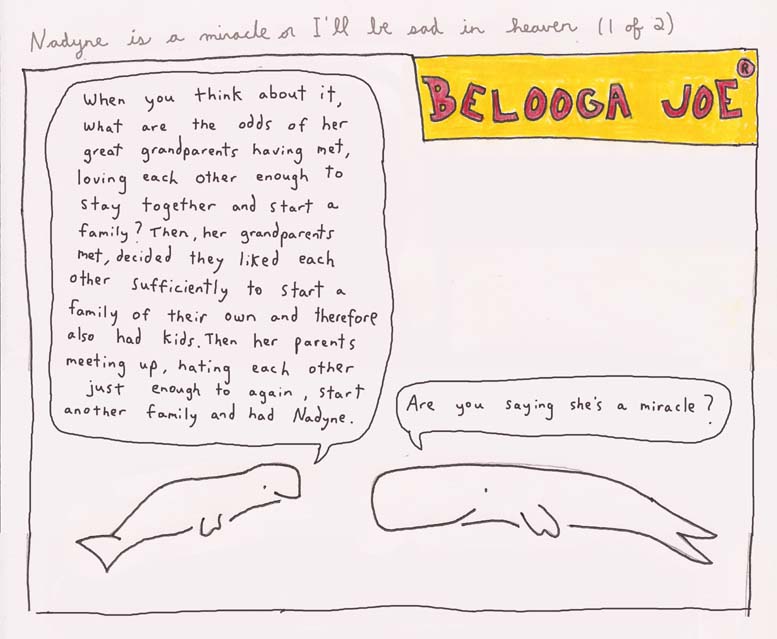 Nadyne is a miracle or I'll be sad in heaven (1 of 2)
BELOOGA JOE ®
When you think about it,
what are the odds of her
great grandparents having met,
loving each other enough to
stay together and start a
family? Then, her grandparents
met, decided they liked each
other sufficiently to start a
family of their own and therefore
also had kids. Then her parents
meeting up, hating each other
just enough to again, start
another family and had Nadyne.
Are you saying she's a miracle?